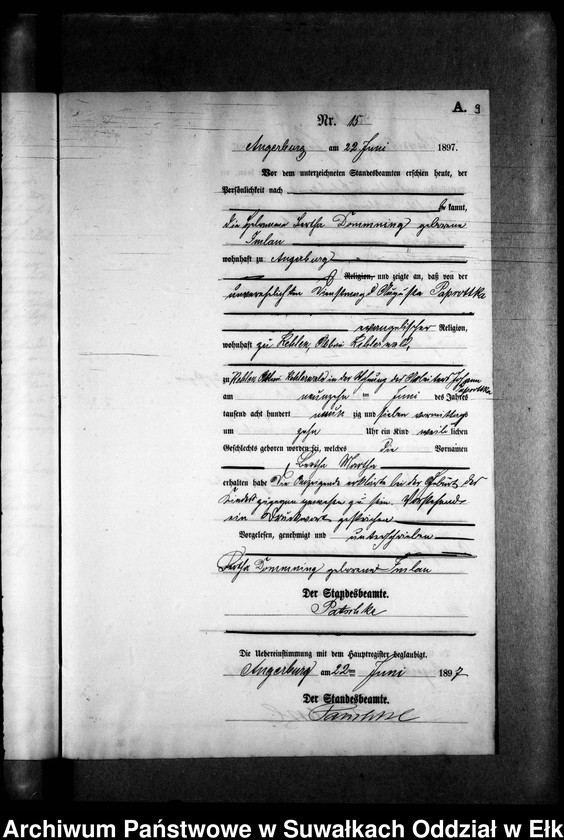 A. 9
Nr. 15
Angerburg am 22 Juni 1897.
Vor dem unterzeichneten Standesbeamten erschien heute, der
Persönlichkeit nach
be kannt,
die Hebamme Bertha Dommning geborene
Imlau
wohnhaft zu Angerburg
Religion, und zeigte an, daß von der
unverehelichten Dienstmagd Auguste Paprottka
evangelischer Religion,
wohnhaft zu Kehlen, Abbau Kehlerwald,
zu Kehlen Abbau Kehlerwald in der Wohnung des Arbeiters Johann
Paprottka
am neunzehn ten Juni des Jahres
tausend acht hundert neun zig und sieben vormittags
um zehn Uhr ein Kind weib lichen
Geschlechts geboren worden sei, welches die Vornamen
Bertha Martha
erhalten habe Die Anzeigende erklärte bei der Geburt des
Kindes zugegen gewesen zu sein. Vorstehend
ein Druckwort gestrichen
Vorgelesen, genehmigt und unterschrieben
Bertha Dommning geborene Imlau
Der Standesbeamte.
Patschke
Die Uebereinstimmung mit dem Hauptregister beglaubigt.
Angerburg am 22ten Juni 1897
Der Standesbeamte.
Archiwum Państwowe w Suwałkach Oddział w Ełk